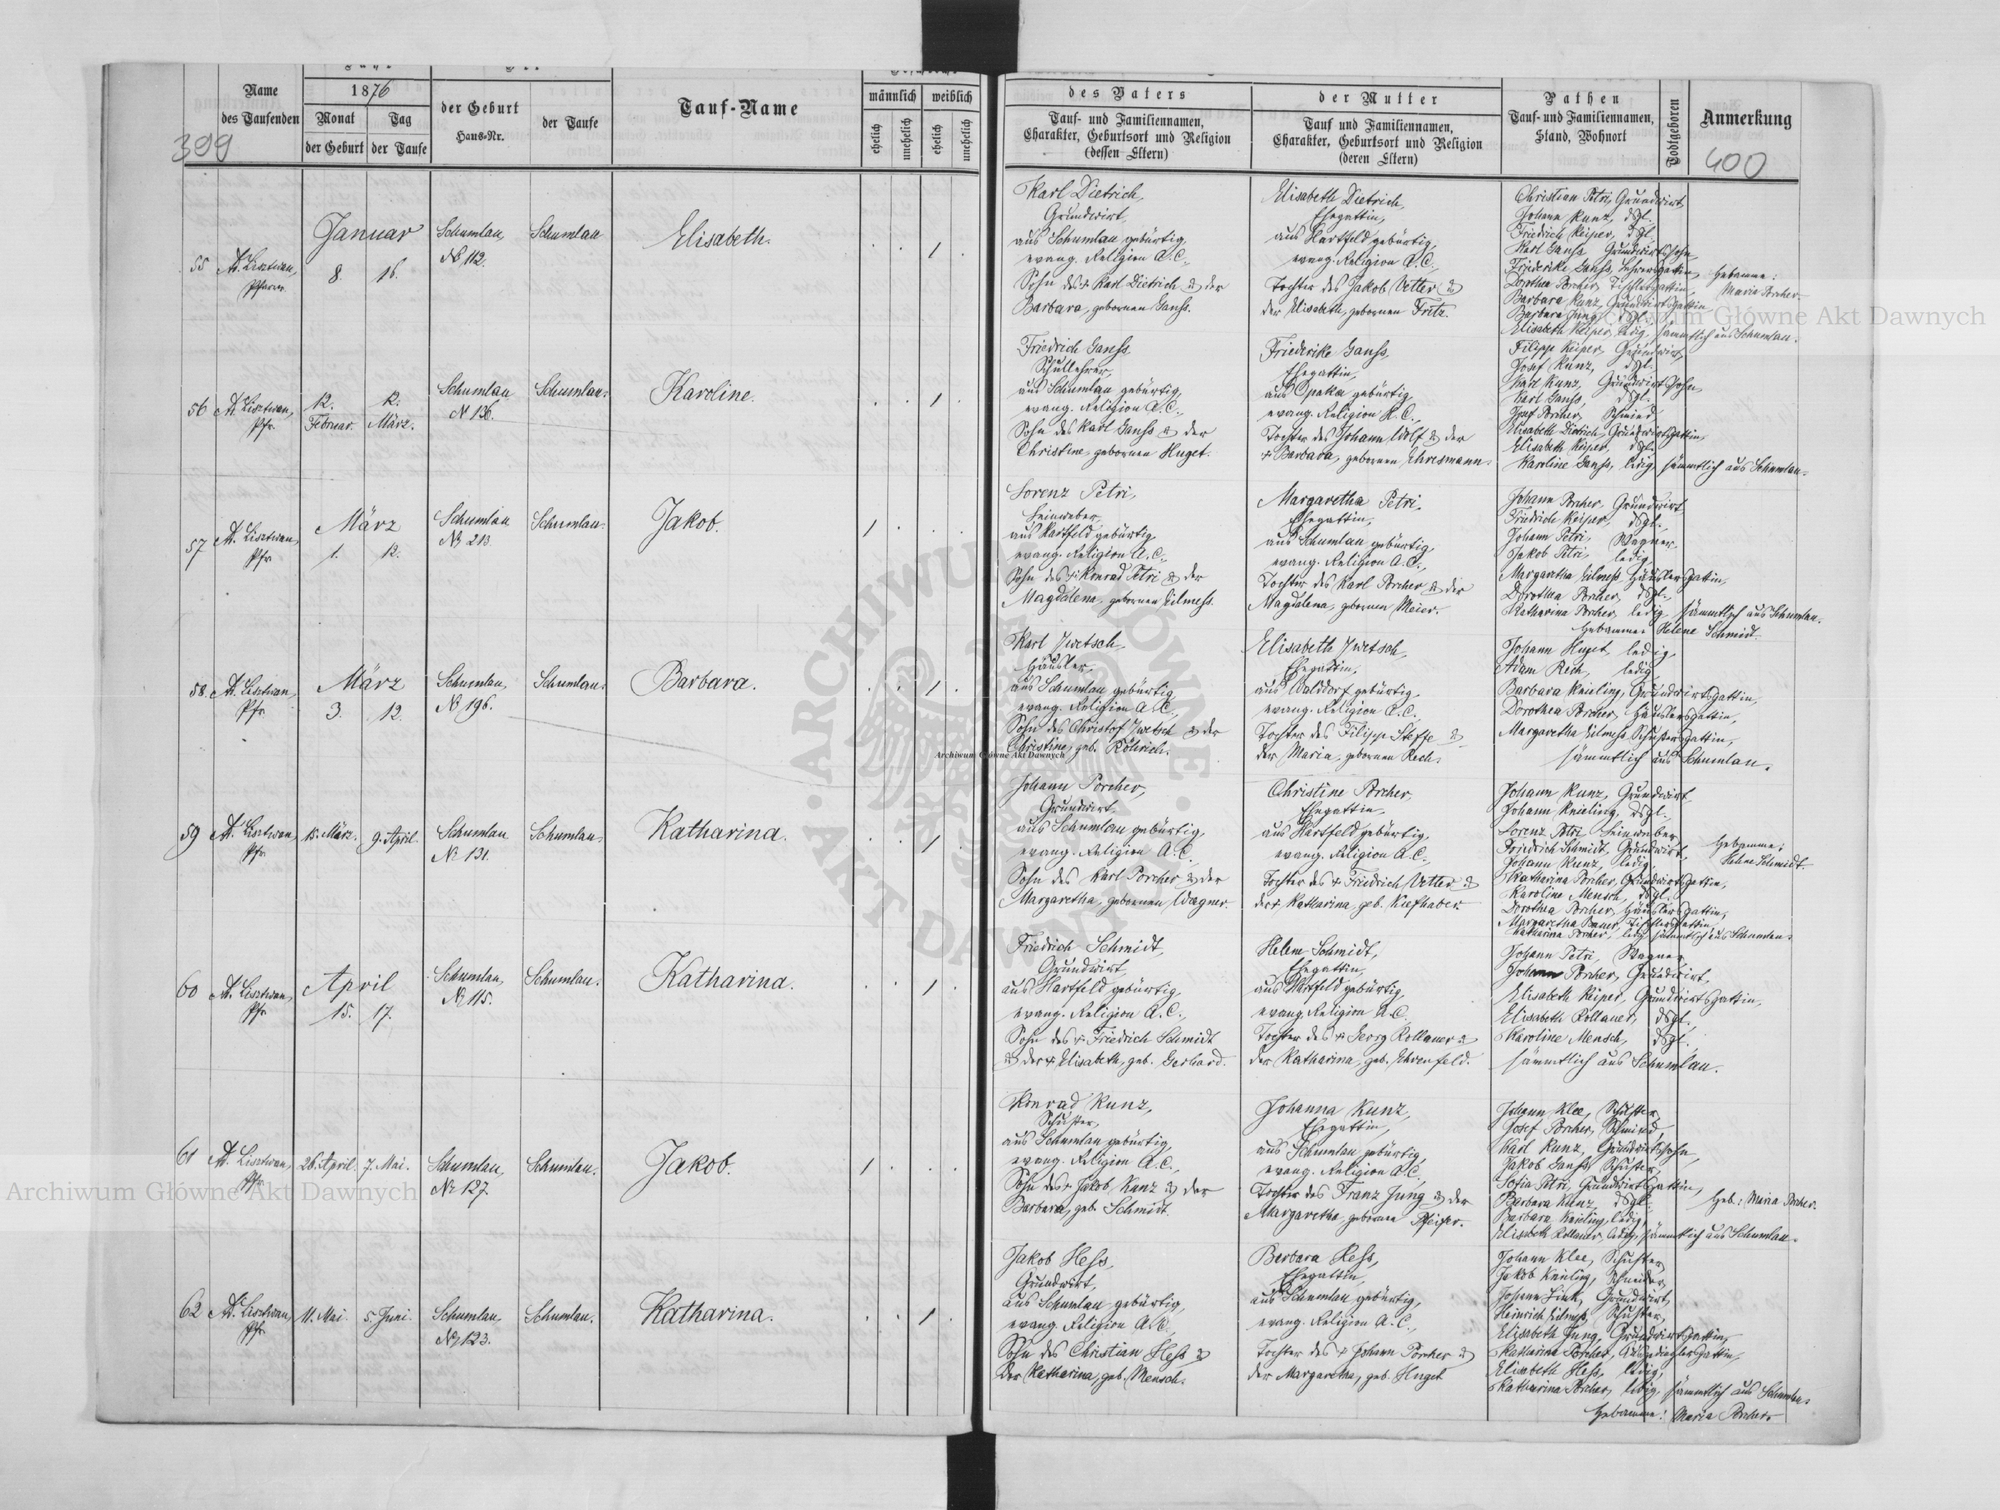 399
400
Name
des Taufenden
1876
Monat
der Geburt
Tag
der Taufe
der Geburt
Haus-Nr.
der Taufe
Tauf-Name
männlich
weiblich
ehelich
unehelich
ehelich
unehelich
des Vaters
Tauf- und Familiennamen,
Charakter, Geburtsort und Religion
(dessen Eltern)
der Mutter
Tauf und Familiennamen,
Charakter, Geburtsort und Religion
(deren Eltern)
Pathen
Tauf- und Familiennamen,
Stand, Wohnort
Todtgeboren
Anmerkung
55
A. Lisztwan,
Pfarrer
Januar
8.
16.
Schumlau
No 112.
Schumlau
Elisabeth.
Karl Dietrich,
Grundwirt,
aus Schumlau gebürtig,
evang. Religion A.C.,
Sohn des + Karl Dietrich & der
Barbara, gebornen Ganss.
Elisabeth Dietrich,
Ehegattin,
aus Hartfeld gebürtig,
evang. Religion A.C.,
Tochter des Jakob Vetter &
der Elisabeth, gebornen Fritz.
Christian Petri, Grundwirt,
Johann Kunz, dsgl.
Friedrich Keiper, dsgl.
Karl Ganss, Grundwirtssohn,
Friederike Ganss, Lehrersgattin,
Dorothea Porcher, Tischlersgattin,
Barbara Kunz, Grundwirtsgattin
Barbara Jung, dsgl.
Elisabeth Keiper, ledig, sämmtlich aus Schumlau.
Hebamme:
Maria Porcher.
56
A. Lisztwan,
Pfr.
12.
Februar.
12.
März.
Schumlau
N 136.
Schumlau.
Karoline.
Friedrich Ganss,
Schullehrer,
aus Schumlau gebürtig,
evang. Religion A.C.,
Sohn des Karl Ganss & der
Christine, gebornen Huget.
Friederike Ganss,
Ehegattin,
aus Opaka gebürtig,
evang. Religion A.C.,
Tochter des Johann Wolf & der
+ Barbara, gebornen Ehresmann.
Filipp Keiper, Grundwirt,
Josef Kunz, dsgl.
Karl Kunz, Grundwirtssohn,
Karl Ganss, dsgl.
Josef Porcher, Schmied,
Elisabeth Dietrich, Grundwirtsgattin,
Elisabeth Keiper, dsgl.
Karoline Ganss, ledig, sämmtlich aus Schumlau.
57
A. Lisztwan,
Pfr.
März
1.
12.
Schumlau
No 213.
Schumlau.
Jakob.
Lorenz Petri,
Leinweber,
aus Hartfeld gebürtig,
evang. Religion A.C.,
Sohn des + Konrad Petri & der
Magdalena, gebornen Eilmess.
Margaretha Petri,
Ehegattin,
aus Schumlau gebürtig,
evang. Religion A.C.,
Tochter des Karl Porcher & der
Magdalena, gebornen Meier.
Johann Porcher, Grundwirt,
Friedrich Keiper, dsgl.,
Johann Petri, Wagner,
Jakob Petri, ledig,
Margaretha Eilmess, Häuslersgattin,
Dorothea Porcher, dsgl.,
Katharina Porcher, ledig, sämmtlich aus Schumlau.
Hebamme: Helene Schmidt.
58.
A. Lisztwan,
Pfr.
März
3.
12.
Schumlau,
No 196.
Schumlau.
Barbara.
Karl Jwetsch,
Häusler,
aus Schumlau gebürtig,
evang. Religion A.C.,
Sohn des Christof Jwetsch & der
Christine, geb. Röhrich.
Elisabeth Jwetsch,
Ehegattin,
aus Walddorf gebürtig,
evang. Religion A.C.,
Tochter des Filipp Steffe &
der Maria, gebornen Rech.
Johann Huget, ledig,
Adam Rech, ledig,
Barbara Knieling, Grundwirtsgattin,
Dorothea Porcher, Häuslersgattin,
Margaretha Eilmess, Schustersgattin,
sämmtlich aus Schumlau.
59
A. Lisztwan,
Pfr.
15. März.
9. April.
Schumlau
No 131.
Schumlau.
Katharina.
Johann Porcher,
Grundwirt,
aus Schumlau gebürtig,
evang. Religion A.C.,
Sohn des Karl Porcher & der
Margaretha, gebornen Wagner.
Christine Porcher,
Ehegattin,
aus Hartfeld gebürtig,
evang. Religion A.C.,
Tochter des + Friedrich Vetter &
der + Katharina, geb. Kiefhaber.
Johann Kunz, Grundwirt,
Johann Knieling, dsgl.,
Lorenz Petri, Leinweber,
Friedrich Schmidt, Grundwirt,
Johann Kunz, ledig,
Katharina Porcher, Grundwirtsgattin,
Karoline Mensch, dsgl.,
Dorothea Porcher, Häuslersgattin,
Margaretha Bauer, Tischlersgattin,
Katharina Porcher, ledig, sämmtlich aus Schumlau.
Hebamme:
Helene Schmidt.
60
A. Lisztwan,
Pfr.
April
15.
17.
Schumlau,
No 115.
Schumlau.
Katharina.
Friedrich Schmidt,
Grundwirt,
aus Hartfeld gebürtig,
evang. Religion A.C.,
Sohn des + Friedrich Schmidt
& der + Elisabeth, geb. Gerhard.
Helene Schmidt,
Ehegattin,
aus Hartfeld gebürtig,
evang. Religion A.C.,
Tochter des + Georg Rollauer &
der Katharina, geb. Ehrenfeld.
Johann Petri, Wagner,
Johann Porcher, Grundwirt,
Elisabeth Keiper, Grundwirtsgattin,
Elisabeth Rollauer, dsgl.,
Karoline Mensch, dsgl.,
sämmtlich aus Schumlau.
61
A. Lisztwan,
Pfr.
26. April.
7. Mai.
Schumlau,
No 127.
Schumlau.
Jakob.
Konrad Kunz,
Schuster,
aus Schumlau gebürtig,
evang. Religion A.C.,
Sohn des + Jakob Kunz & der
Barbara, geb. Schmidt.
Johanna Kunz,
Ehegattin,
aus Schumlau gebürtig,
evang. Religion A.C.,
Tochter des Franz Jung & der
Margaretha, gebornen Pfeifer.
Johann Klee, Schuster,
Josef Porcher, Schmied,
Karl Kunz, Grundwirtssohn,
Jakob Ganss, Schuster,
Sofia Petri, Grundwirtsgattin,
Barbara Kunz, dsgl.,
Barbara Knieling, ledig,
Elisabeth Rollauer, ledig, sämmtlich aus Schumlau.
Heb.: Maria Porcher.
62
A. Lisztwan,
Pfr.
11. Mai
5. Juni.
Schumlau,
No 123.
Schumlau.
Katharina.
Jakob Hess,
Grundwirt,
aus Schumlau gebürtig,
evang. Religion A.C.,
Sohn des Christian Hess &
der Katharina, geb. Mensch.
Barbara Hess,
Ehegattin,
aus Schumlau gebürtig,
evang. Religion A.C.,
Tochter des + Johann Porcher &
der Margaretha, geb. Huget
Johann Klee, Schuster,
Jakob Knieling, Schneider,
Johann Fink, Grundwirt,
Heinrich Eilmess, Schuster,
Elisabeth Jung, Grundwirtsgattin,
Katharina Porcher, Grundwirtsgattin,
Elisabeth Hess, ledig,
Katharina Porcher, ledig, sämmtlich aus Schumlau.
Hebamme: Maria Porcher.
Archiwum Główne Akt Dawnych
Archiwum Główne Akt Dawnych
Archiwum Główne Akt Dawnych
ARCHIWUM GŁÓWNE · AKT DAWNYCH ·